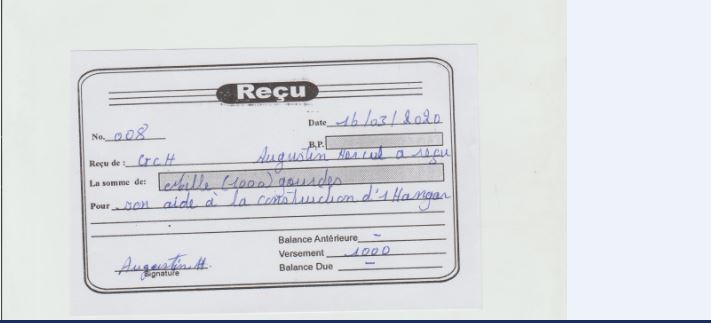 Reçu
Date 16/03/2020
No. 008
B.P.
Reçu de : CrcH Augustin Hercul a reçu
La somme de: Mille (1000) gourdes
Pour son aide à la construction d'1 Hangar
Balance Antérieure -
Versement 1000
Balance Due -
Augustin H.
Signature